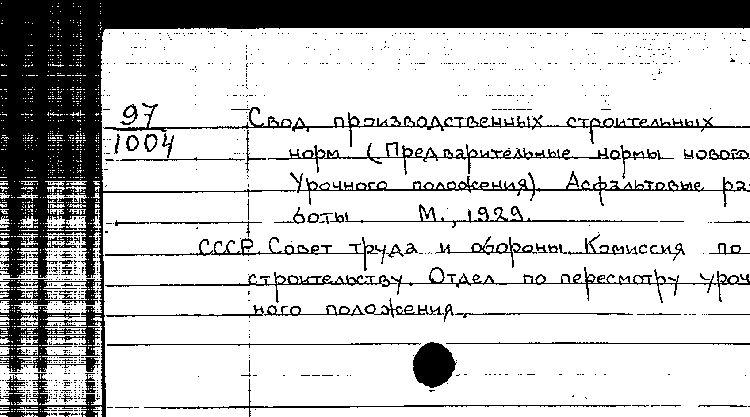 97
1004
Свод производственных строительных
норм (Предварительные нормы нового
Урочного положения). Асфальтовые ра-
боты. М., 1929.
СССР. Совет труда и обороны. Комиссия по
строительству. Отдел по пересмотру уроч
ного положения.